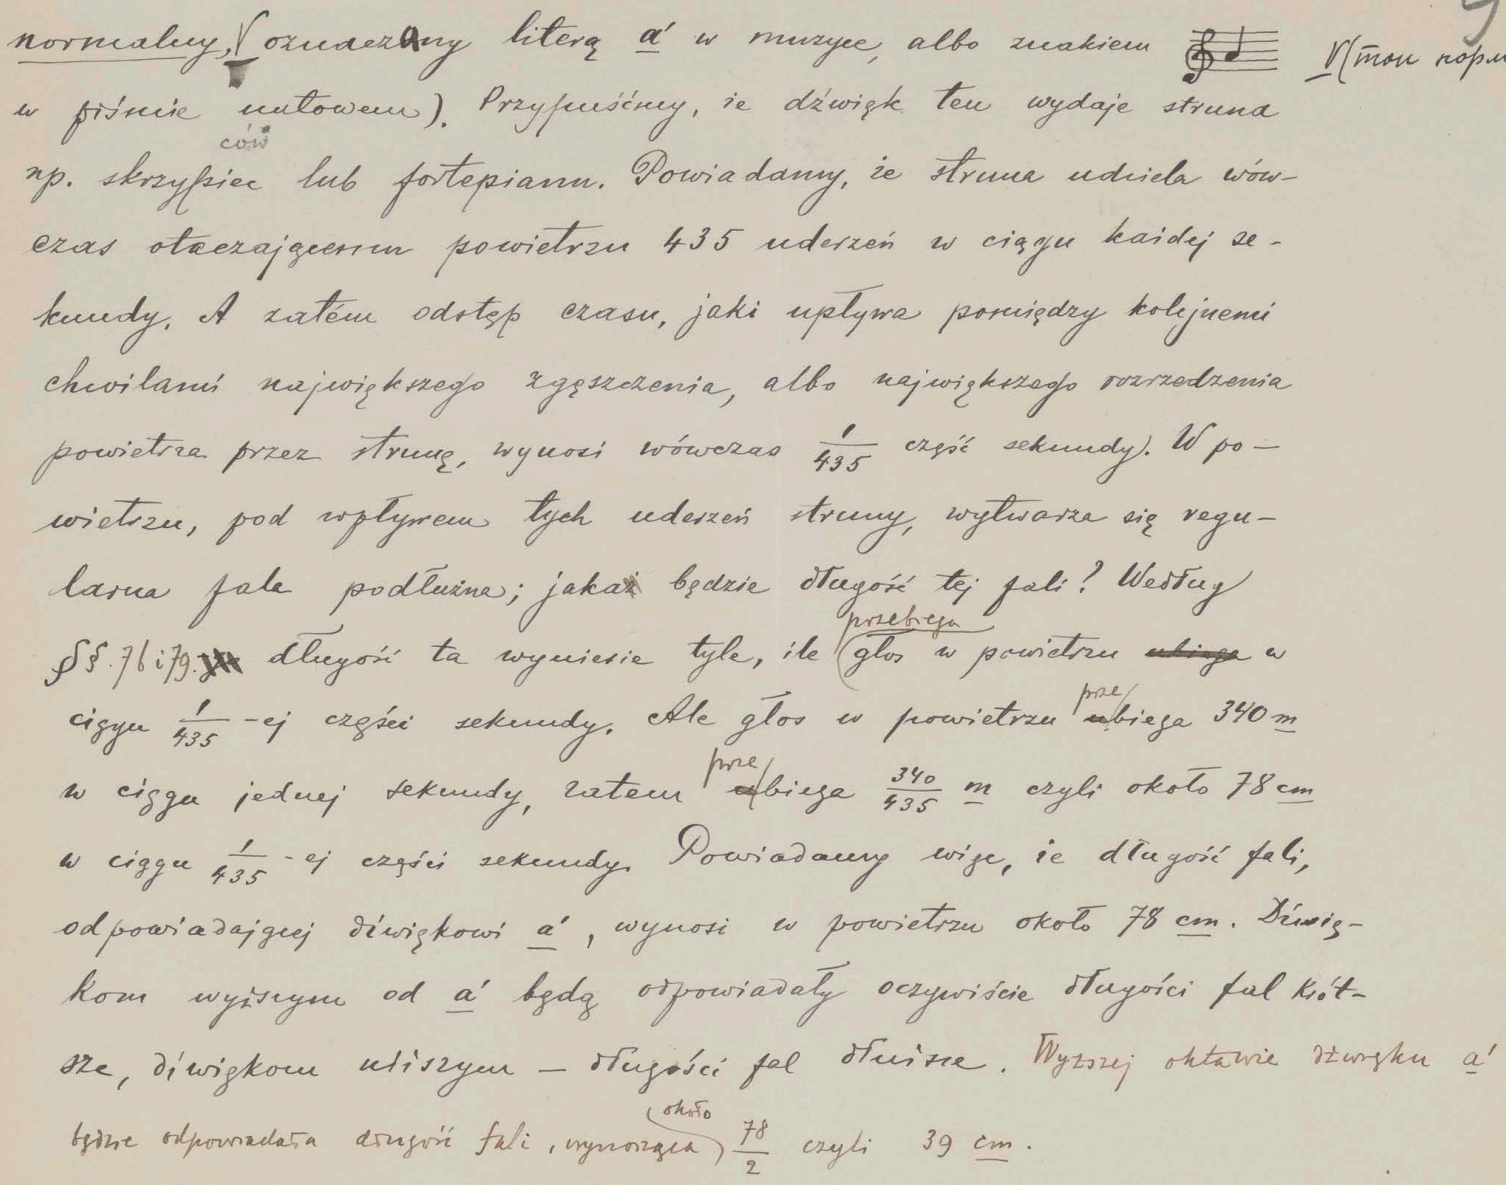 normalny, V oznaczany literą a' w muzyce, albo znakiem V(ton norm
w piśmie nutowem). Przypuśćmy, że dźwięk ten wydaje struna
ców
np. skrzypiec lub fortepianu. Powiadamy, że struna udziela wów-
czas otaczającemu powietrzu 435 uderzeń w ciągu każdej se-
kundy. A zatém odstęp czasu, jaki upływa pomiędzy kolejnemi
chwilami największego zgęszczenia, albo największego rozrzedzenia
powietrza przez strunę, wynosi wówczas 1/435 część sekundy). W po-
wietrzu, pod wpływem tych uderzeń struny, wytwarza się regu-
larna fala podłużna; jaka będzie długość tej fali? Według
przebiega
§§. 76 i 79. długość ta wyniesie tyle, ile głos w powietrzu ubiega w
prze
ciągu 1/435 -ej części sekundy. Ale głos w powietrzu ubiega 340 m
prze
w ciągu jednej sekundy, zatem ubiega 340/435 m czyli około 78 cm
w ciągu 1/435 -ej części sekundy. Powiadamy więc, że długość fali,
odpowiadającej dźwiękowi a', wynosi w powietrzu około 78 cm. Dźwię-
kom wyższym od a' będą odpowiadały oczywiście długości fal krót-
sze, dźwiękom niższym — długości fal dłuższe. Wyższej oktawie dźwięku a'
około
będzie odpowiadała długość fali, wynosząca 78/2 czyli 39 cm.